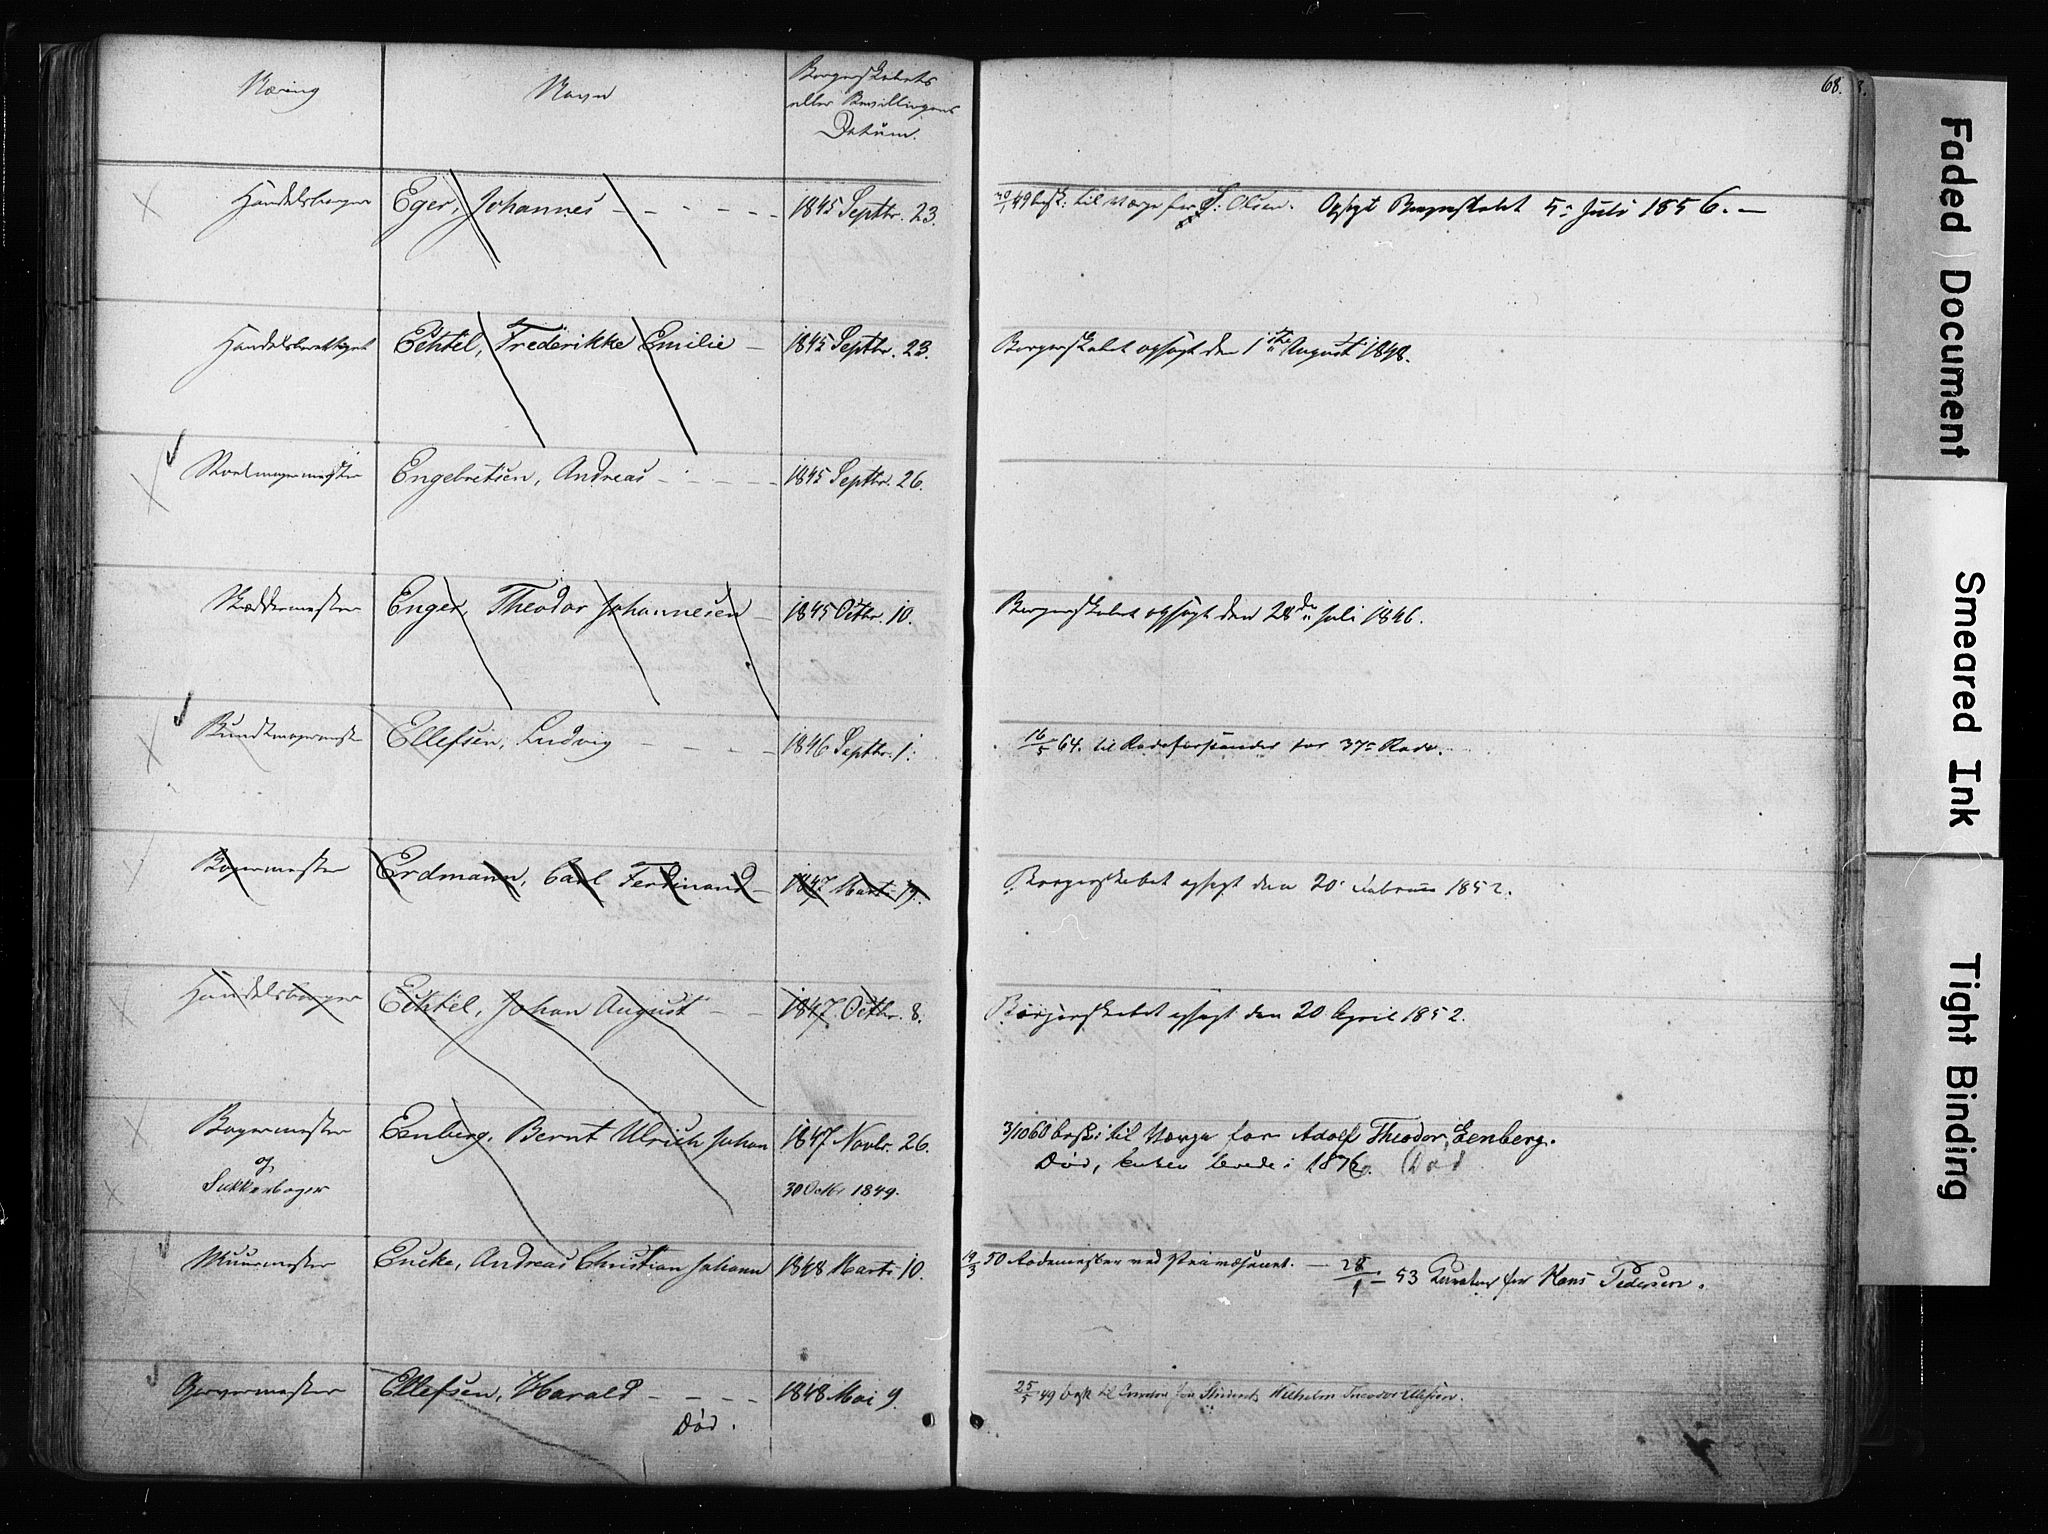 Næring Navn Borgerskabets
eller Bevillingens
Datum.
68.
Handelsborger Eger, Johannes - - - - - 1845 Septbr. 23. 49 besk. til Værge for S. Olsen. Opsagt Borgerskabet 5te Juli 1856. -
Handelsberettiget Echtel, Frederikke Emilie - 1845 Septbr. 23. Borgerskabet opsagt den 1ste August 1848.
Engebretsen, Andreas - - - - - 1845 Septbr. 26.
Skræddermester Enger, Theodor Johannesen - 1845 Octbr. 10. Borgerskabet opsagt den 28de Juli 1846.
Buntmagermester Ellefsen, Ludvig - - - - 1846 Septbr. 1. 16/5 64. til Rodeforstander for 37te Rode.
Bagermester Erdmann, Carl Ferdinand - 1847 Marts 19. Borgerskabet opsagt den 20 Februar 1852.
Handelsborger Echtel, Johan August - - 1847 Octbr. 8. Borgerskabet opsagt den 20 April 1852.
Bagermester Eenberg, Bernt Ulrich Johan 1847 Novbr. 26. 3/10 60 besk. til Værge for Adolf Theodor Eenberg.
og Død, 1876. Død
Sukkerbager 30 Octbr 1849.
Muurmester Encke, Andreas Christian Johann 1848 Marts 10. 19/3 50 Rodemester ved - 28/1 - 53 Curator for Hans Pedersen.
Garvermester Ellefsen, Harald - - - 1848 Mai 9. 25/5 49 besk. til Curator for Student Wilhelm Theodor Ellefsen.
Død.
Faded Document
Smeared Ink
Tight Binding